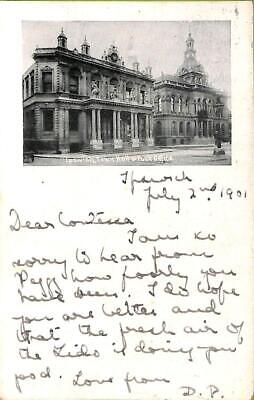 IPSWICH, TOWN HALL & POST OFFICE
Ipswich
July 2nd 1901
Dear Contessa
I am so
sorry to hear from
how poorly you
have been. I do hope
you are better and
that the fresh air of
the Lido is doing you
good. Love from
D. P.